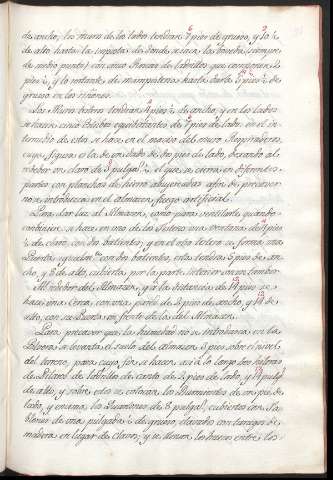 de ancho; los muros de los lados tendran 7 pies de grueso, y 9 ½
de alto hasta la imposta de donde se tira la bobeda, (siempre
de medio punto) con cinco Roscas de ladrillos que componen 2
pies ½, y lo restante de mamposteria hasta darla 5 pies ½ de
grueso en los riñones.
Los Muros testeros tendran 4 pies ½ de ancho, y en los lados
se hacen cinco Estribos equidistantes de pies de lado: en el in-
termedio de ellos se hace en el macizo del muro Respiraderos
cuya figura es la de un dado de dos pies de lado, dexando al
rededor un claro de 3 pulgs. el que se cierra en diferentes
partes con planchas de hierro ahugereadas afin de precaver
no se introduzca en el almacen fuego artificial.
Para dar luz al Almacen, como para ventilarle quando
combiniere, se hace en uno de los testeros una ventana de 4 pies
½ de claro, con dos batientes; y en el otro testero se forma una
Puerta igualm.te con dos batientes; esta tendrá 5 pies de an-
cho, y 8 de alto, cubierta por la parte interior con un tambor.
Al rededor del Almacen, y á la distancia de 14 pies se
hace una Cerca, con una pared de 2 pies de ancho, y 14 de
alto, con su Puerta en frente de la del Almacen.
Para precaver que la humedad no se introduzca en la
Polvora se levanta el suelo del almacen 3 pies sobre el nivel
del terreno, para cuyo fin se hacen a lo largo tres hileras
de Pilares de ladrillos de canto de 2 pies de lado, y pulgs.
de alto, y sobre ellos se colocan los Durmientes de un pie de
lado, y encima los Quartones de 8 pulgs. cubiertos con ta-
blones de una pulgada ½ de grueso, clavados con tarugos de
madera en lugar de clavos; y se llenan los huecos entre los